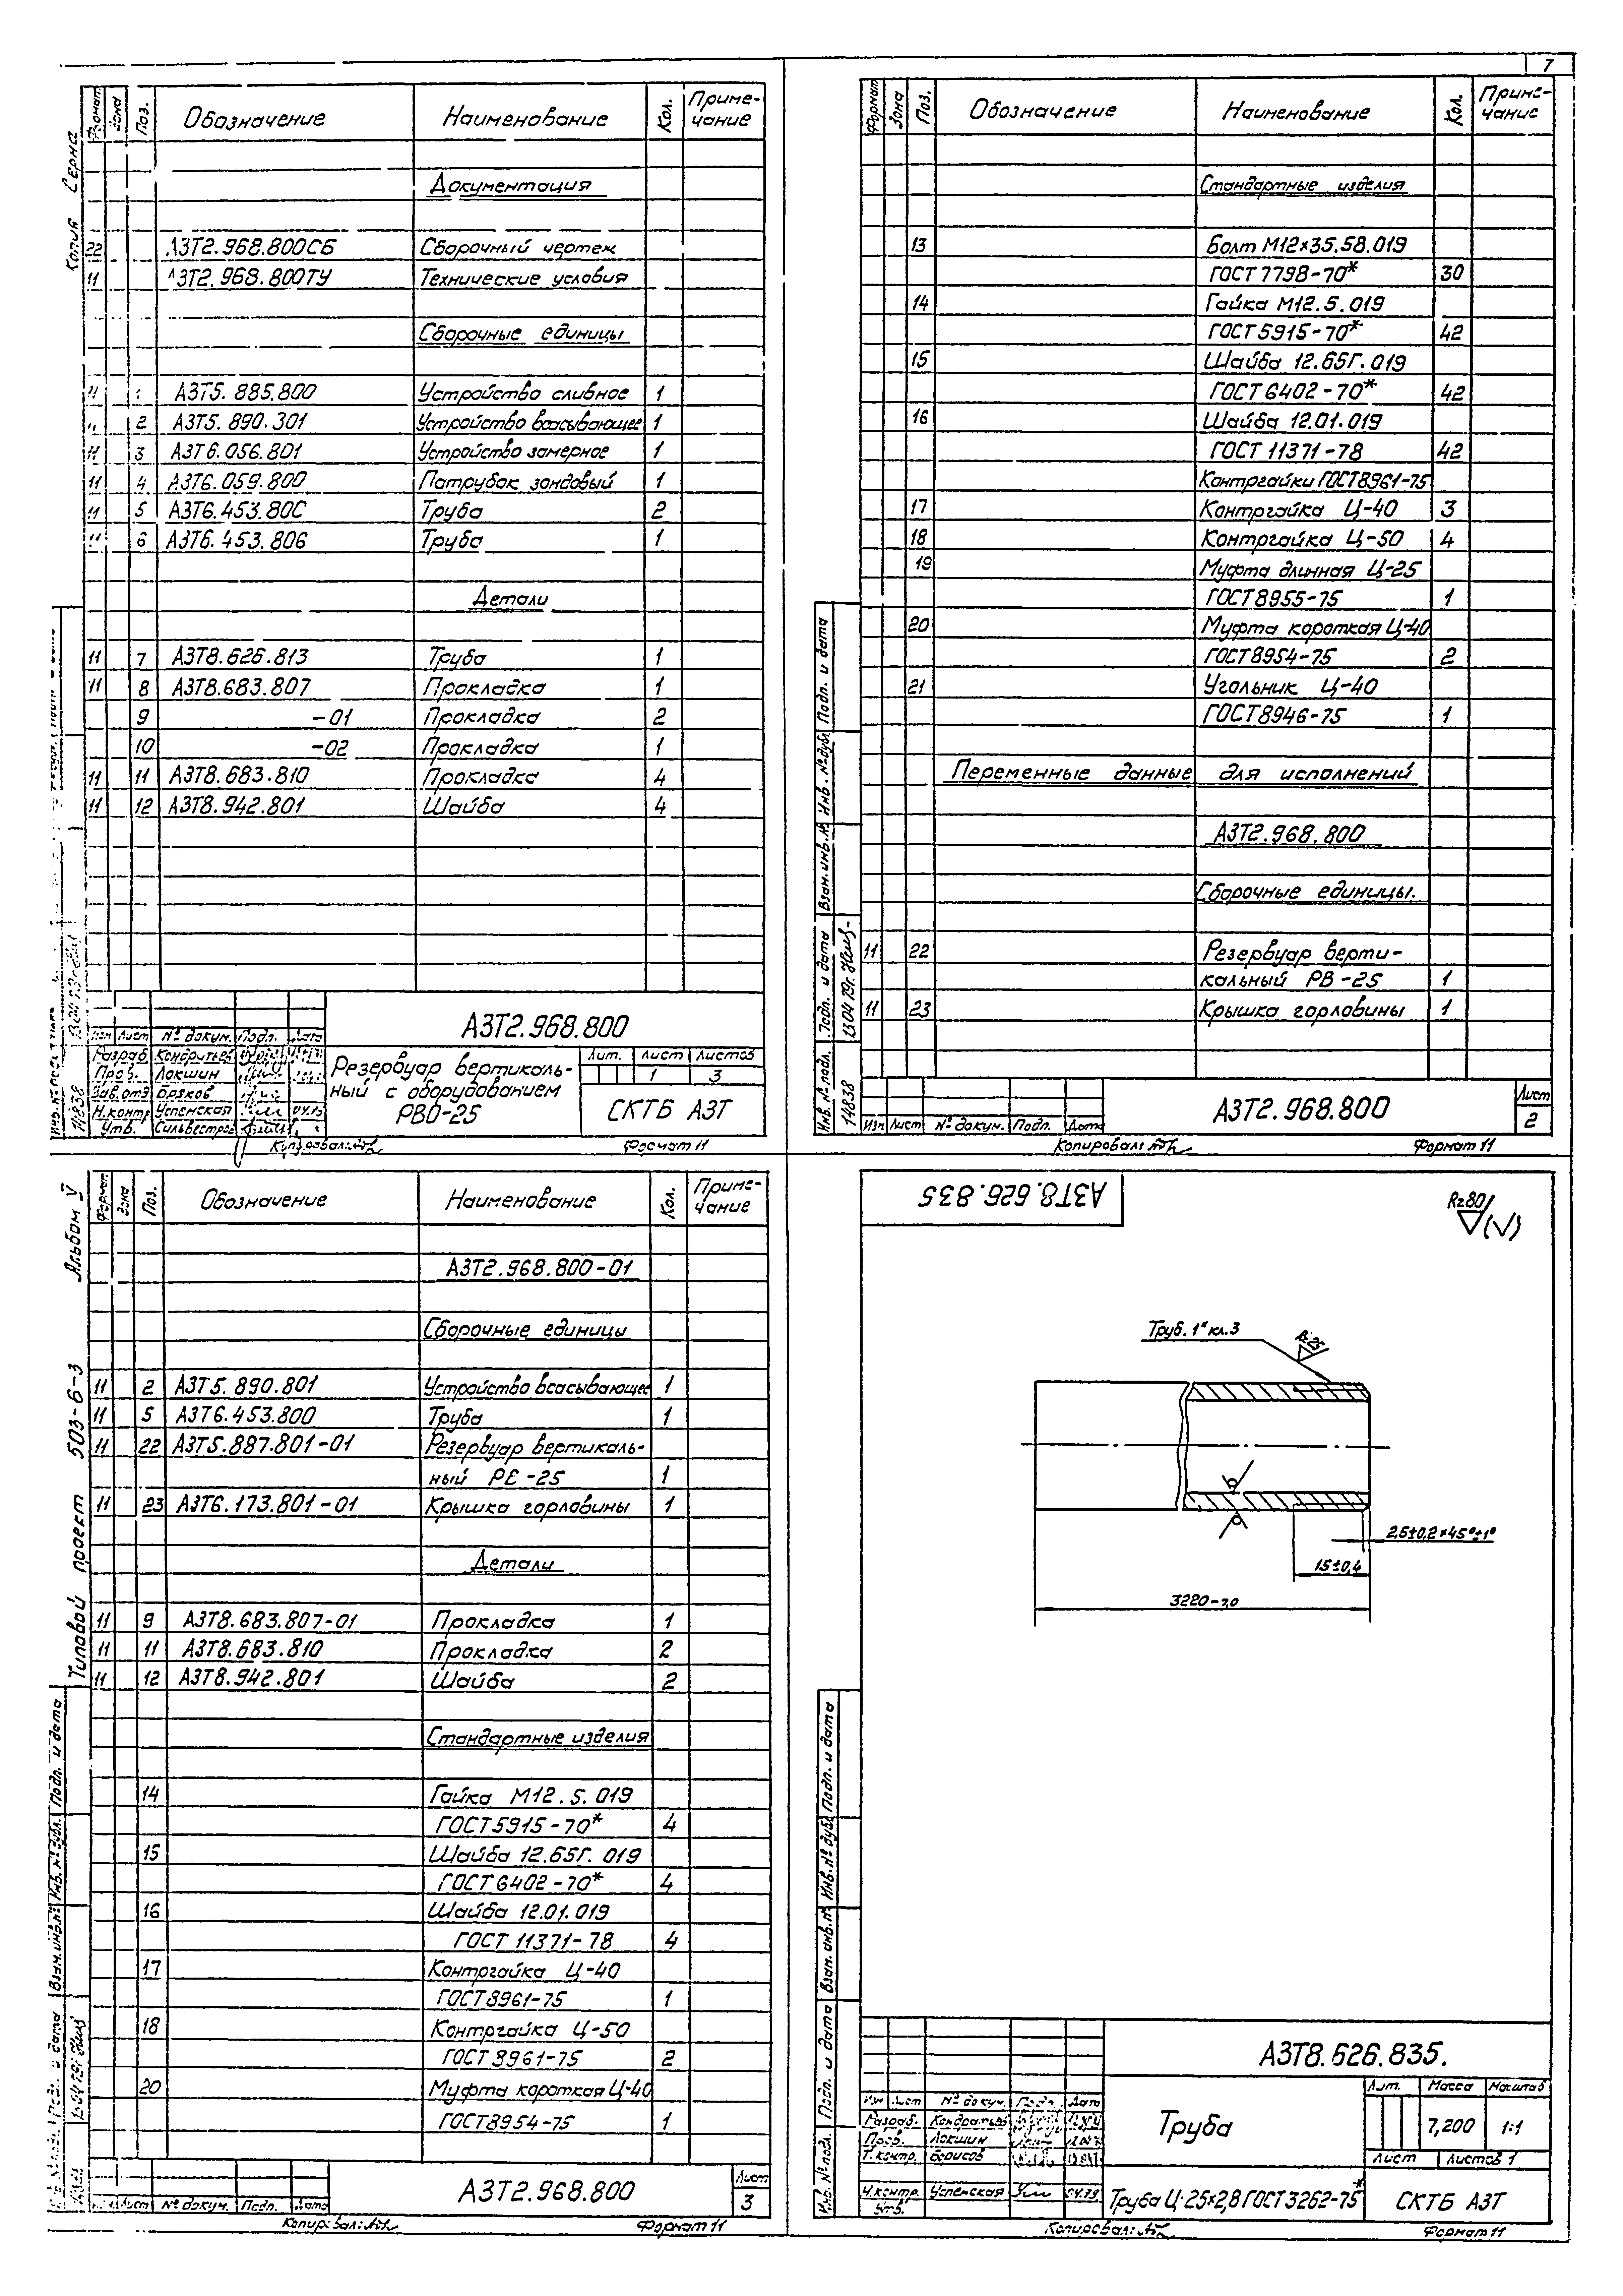 7
Копия Серна
Формат Зона Поз. Обозначение Наименование Кол. Приме-
чание
Документация
22 АЗТ2.968.800СБ Сборочный чертеж
11 АЗТ2.968.800ТУ Технические условия
Сборочные единицы
11 1 АЗТ5.885.800 Устройство сливное 1
11 2 АЗТ5.890.301 Устройство всасывающее 1
11 3 АЗТ6.056.801 Устройство замерное 1
11 4 АЗТ6.059.800 Патрубок зондовый 1
11 5 АЗТ6.453.80С Труба 2
11 6 АЗТ6.453.806 Труба 1
Детали
11 7 АЗТ8.626.813 Труба 1
11 8 АЗТ8.683.807 Прокладка 1
9 -01 Прокладка 2
10 -02 Прокладка 1
11 11 АЗТ8.683.810 Прокладка 4
11 12 АЗТ8.942.801 Шайба 4
АЗТ2.968.800
Изм Лист № докум. Подп. Дата
Разраб. Кондратьев
Пров. Локшин
Зав.отд Бряков
Н.контр Успенская 04.79
Утв. Сильвестров
Резервуар вертикаль-
ный с оборудованием
РВО-25
Лит. Лист Листов
1 3
СКТБ АЗТ
14838
Копировал: Формат 11
Формат Зона Поз. Обозначение Наименование Кол. Приме-
чание
Стандартные изделия
13 Болт М12×35.58.019
ГОСТ 7798-70* 30
14 Гайка М12.5.019
ГОСТ 5915-70* 42
15 Шайба 12.65Г.019
ГОСТ 6402-70* 42
16 Шайба 12.01.019
ГОСТ 11371-78 42
Контргайки ГОСТ8961-75
17 Контргайка Ц-40 3
18 Контргайка Ц-50 4
19 Муфта длинная Ц-25
ГОСТ8955-75 1
20 Муфта короткая Ц-40
ГОСТ8954-75 2
21 Угольник Ц-40
ГОСТ8946-75 1
Переменные данные для исполнений
АЗТ2.968.800
Сборочные единицы.
11 22 Резервуар верти-
кальный РВ-25 1
11 23 Крышка горловины 1
Инв.№ подл. Подп. и дата Взам.инв.№ Инв.№ дубл. Подп. и дата
14838
Изм Лист № докум. Подп. Дата
АЗТ2.968.800
Лист
2
Копировал: Формат 11
Типовой проект 503-6-3 Альбом V
Формат Зона Поз. Обозначение Наименование Кол. Приме-
чание
АЗТ2.968.800-01
Сборочные единицы
11 2 АЗТ5.890.801 Устройство всасывающее 1
11 5 АЗТ6.453.800 Труба 1
11 22 АЗТ5.887.801-01 Резервуар вертикаль-
ный РЕ-25 1
11 23 АЗТ6.173.801-01 Крышка горловины 1
Детали
11 9 АЗТ8.683.807-01 Прокладка 1
11 11 АЗТ8.683.810 Прокладка 2
11 12 АЗТ8.942.801 Шайба 2
Стандартные изделия
14 Гайка М12.5.019
ГОСТ5915-70* 4
15 Шайба 12.65Г.019
ГОСТ6402-70* 4
16 Шайба 12.01.019
ГОСТ 11371-78 4
17 Контргайка Ц-40
ГОСТ8961-75 1
18 Контргайка Ц-50
ГОСТ 8961-75 2
20 Муфта короткая Ц-40
ГОСТ8954-75 1
Подп. и дата Взам.инв.№ Инв.№ дубл. Подп. и дата
Лист № докум. Подп. Дата
АЗТ2.968.800
Лист
3
Копировал: Формат 11
АЗТ8.626.835
Rz80 (√)
Труб. 1" кл.3
Rz25
2,5±0,2×45°±1°
15±0,4
3220-7,0
Инв.№ подл. Подп. и дата Взам.инв.№ Инв.№ дубл. Подп. и дата
АЗТ8.626.835.
Изм Лист № докум. Подп. Дата
Разраб. Кондратьев
Пров. Локшин
Т.контр. Борисов
Н.контр. Успенская 04.79
Утв.
Труба
Лит. Масса Масштаб
7,200 1:1
Лист Листов 1
Труба Ц-25×2,8 ГОСТ3262-75*
СКТБ АЗТ
Копировал: Формат 11